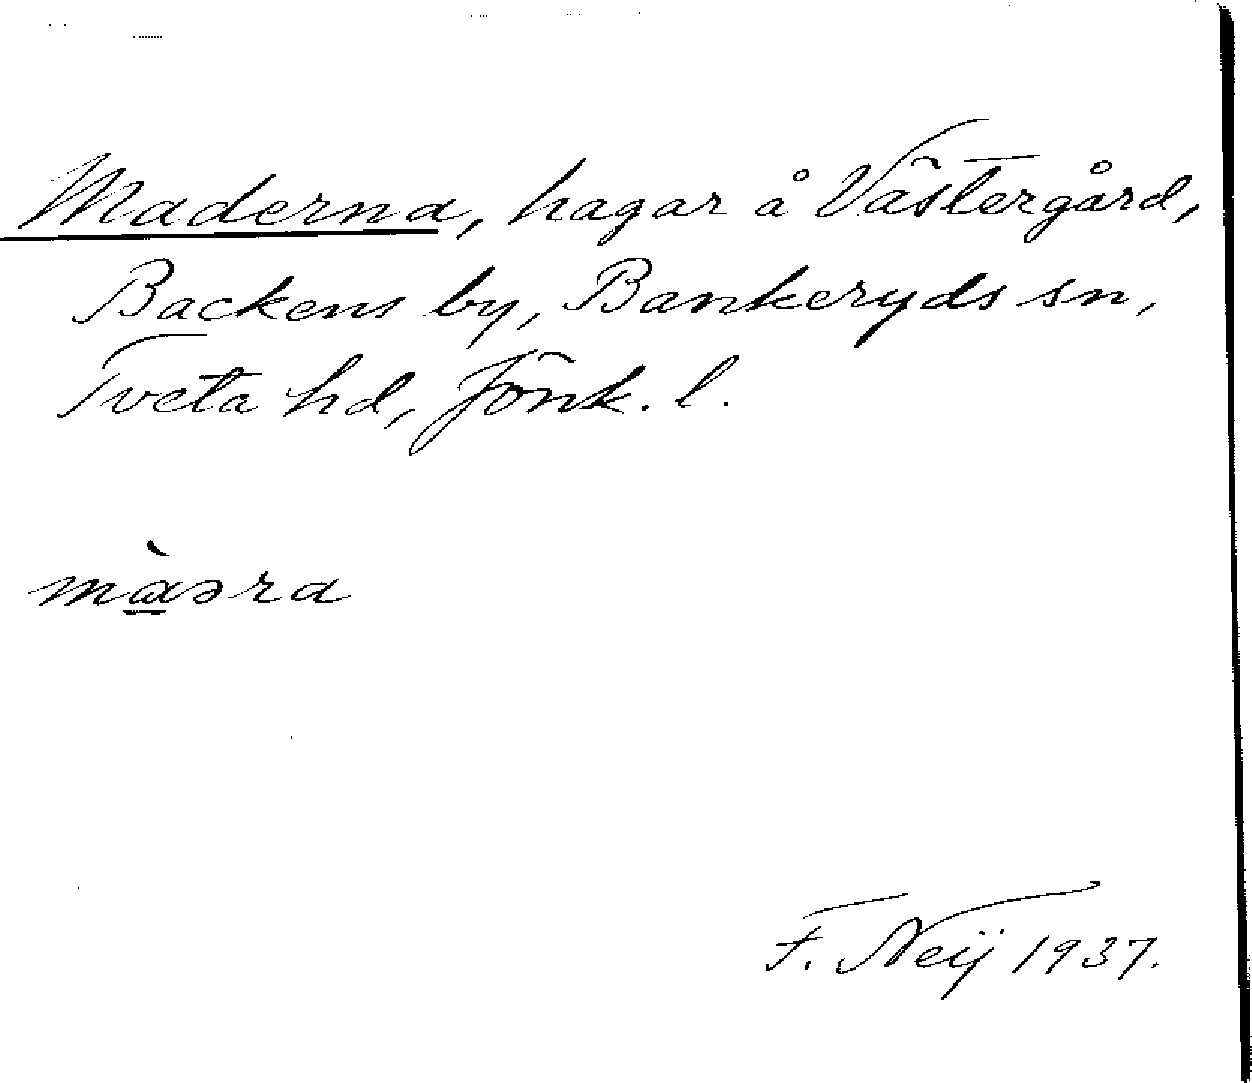 Maderna, hagar å Västergård,
Backens by, Bankeryds sn,
Tveta hd, Jönk. l.
màəra
F. Neij 1937.